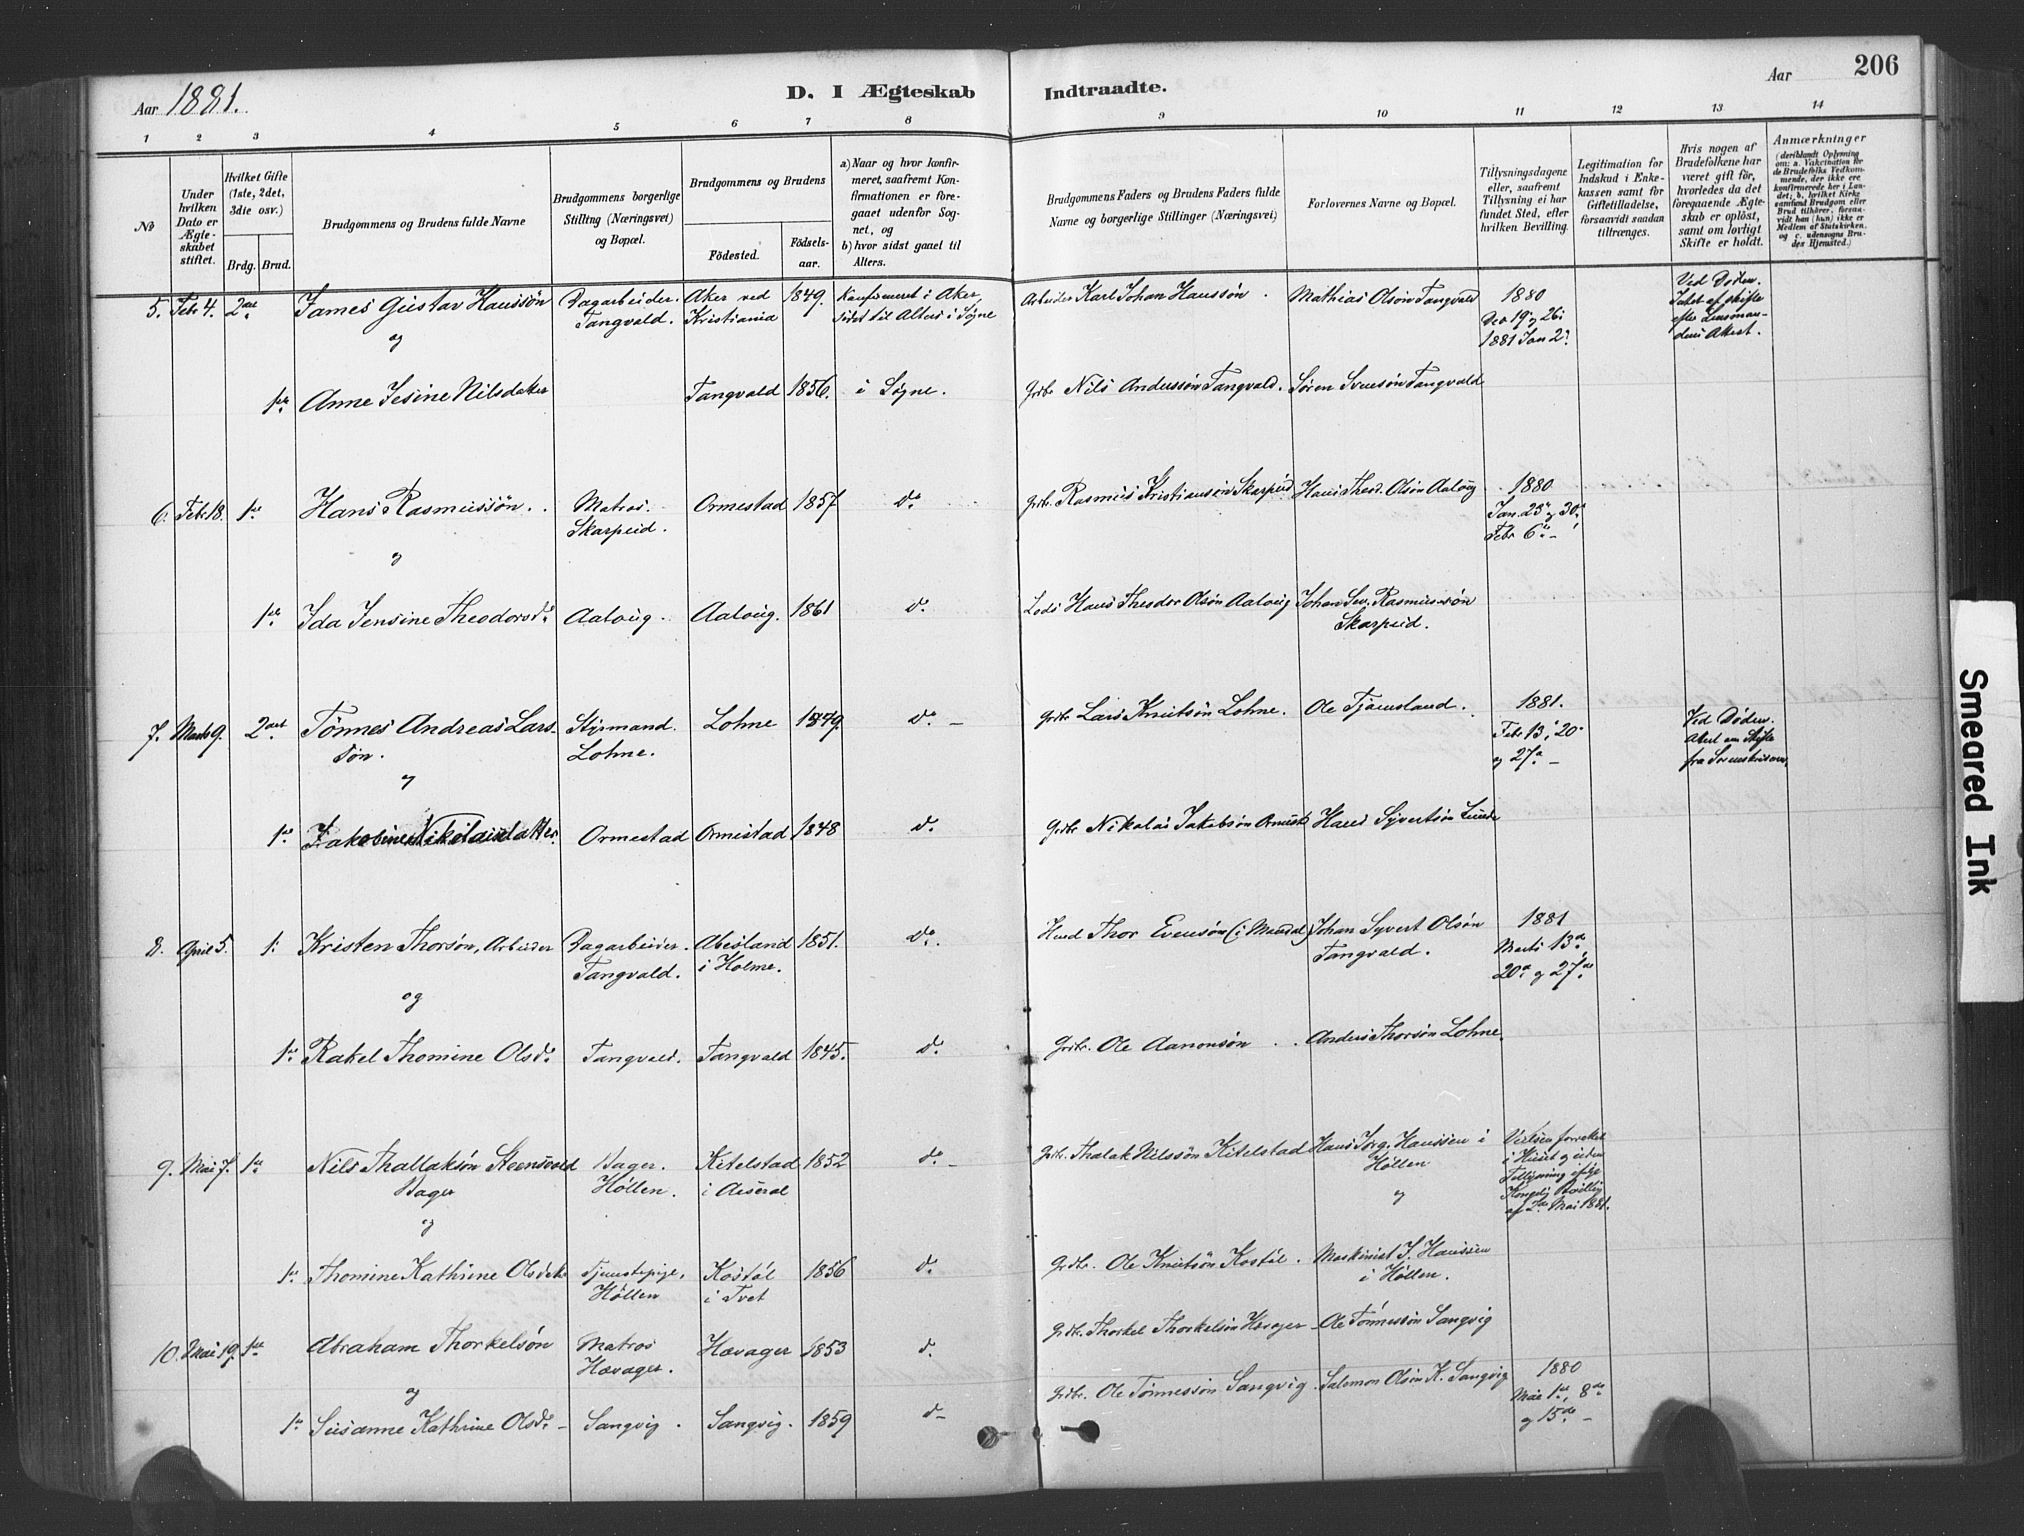 Aar 1881.
D. I Ægteskab
Indtraadte.
Aar
206
1 2 3 4 5 6 7 8 9 10 11 12 13 14
No
Under hvilken Dato er Ægteskabet stiftet.
Hvilket Gifte (1ste, 2det, 3die osv.)
Brdg. Brud.
Brudgommens og Brudens fulde Navne
Brudgommens borgerlige Stilling (Næringsvei) og Bopæl.
Brudgommens og Brudens
Födested.
Födselsaar.
a) Naar og hvor konfirmeret, saafremt Konfirmationen er foregaaet udenfor Sognet, og
b) hvor sidst gaaet til Alters.
Brudgommens Faders og Brudens Faders fulde Navne og borgerlige Stillinger (Næringsvei)
Forlovernes Navne og Bopæl.
Tillysningsdagene eller, saafremt Tillysning ei har fundet Sted, efter hvilken Bevilling.
Legitimation for Indskud i Enkekassen samt for Giftetilladelse, forsaavidt saadan tiltrænges.
Hvis nogen af Brudefolkene har været gift för, hvorledes da det foregaaende Ægteskab er oplöst, samt om lovligt Skifte er holdt.
Anmærkninger
(deriblandt Oplysning om: a. Vakcination for de Brudefolks Vedkommende, der ikke ere konfirmerede her i Landet; b. hvilket Kirkesamfund Brudgom eller Brud tilhörer, forsaavidt han (hun) ikke er Medlem af Statskirken, og c. udensogns Brudes Hjemsted.)
5. Feb 4. 2det James Gustav Hanssön Dagarbeider Tangvald. Aker ved Kristiania 1849. Konfirmeret i Aker, sidst til Alters i Søgne Arbeider Karl Johan Hanssön. Mathias Olsön Tangvald 1880 Dec 19 og 26 1881 Jan 2 Ved Döden. Intet af skifte efter Lensmandens Attest.
og
1ste Anne Jesine Nilsdatter Tangvald 1856. i Søgne. Grdbr Nils Anderssøn Tangvald. Sören Svensön Tangvald
6. Feb. 18. 1ste Hans Rasmussön. Matros. Skarpeid. Ormestad 1857 do Grdbr. Rasmus Kristiansön Skarpeid Hans Theod. Olsön Aaloug 1880 Jan. 23 og 30 Febr 6
og
1ste Ida Jensine Theodorsd. Aaloug. Aaloug. 1861 do Lods Hans Theodor Olsön Aaloug Johan Sev. Rasmussön Skarpeid.
7. Marts 9. 2det Tønnes Andreas Larssön. Styrmand. Lohne. Lohne 1849. do Grdbr Lars Knutsön Lohne. Ole Tjomsland. 1881. Febr 13, 20 og 27 Ved Döden. Attest om Skifte fra Sorenskriveren.
og
1ste Jakobine Nikolaisdatter. Ormestad Ormestad 1848 do Grdbr Nikolai Jakobsön Ormestd Hans Syvertsön Lunde
8. April 5. 1: Kristen Thorsön, Arbeider Dagarbeider. Tangvald. Abesland i Holme. 1851. do Thor Evensön (i Mandal) Johan Syvert Olsön Tangvald. 1881 Marts 13de, 20de og 27de
og
1ste Rakel Thomine Olsd. Tangvald. Tangvald 1845. do Grdbr. Ole Aanonsön Anders Thorsön Lohne.
9. Mai 7. 1ste Nils Thallaksön Steensvold Bager Bager. Höllen. Kitelstad i Aaseral 1852 do Grdbr. Thalak Nilssön Kitelstad Hans Jörg. Hanssen i Höllen og Vielsen forrettet i Huset og uden Tillysning ifölge Kongelig Bevilling af 2den Mai 1881.
og
1ste Thomine Kathrine Olsdatter Tjenestepige, Höllen Kostöl i Tvet 1856 do Grdbr. Ole Knutsön Kostöl. Maskinist J. Hanssen i Höllen.
10. Mai 19. 1ste Abraham Thorkelsön Matros Hævager. Hævager 1853 do Grdbr. Thorkel Thorkelsön Hævager Ole Tönnessön Sangvig
og
1ste Susanne Kathrine Olsd. Sangvig. Sangvig. 1859 do Grdbr. Ole Tönnessön Sangvig. Salomon Olsön K. Sangvig 1880 Mai 1ste, 8de og 15de
Smeared Ink